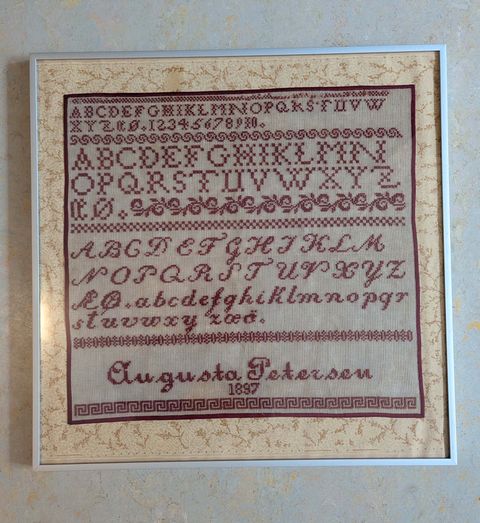 ABCDEFGHIKLMNOPQRSTUVW
XYZÆØ.12345678910.
ABCDEFGHIKLMN
OPQRSTUVWXYZ
ÆØ.
ABCDEFGHIKLM
NOPQRSTUVXYZ
ÆØ.abcdefghiklmnopqr
stuvwxy zæö.
Augusta Petersen
1897